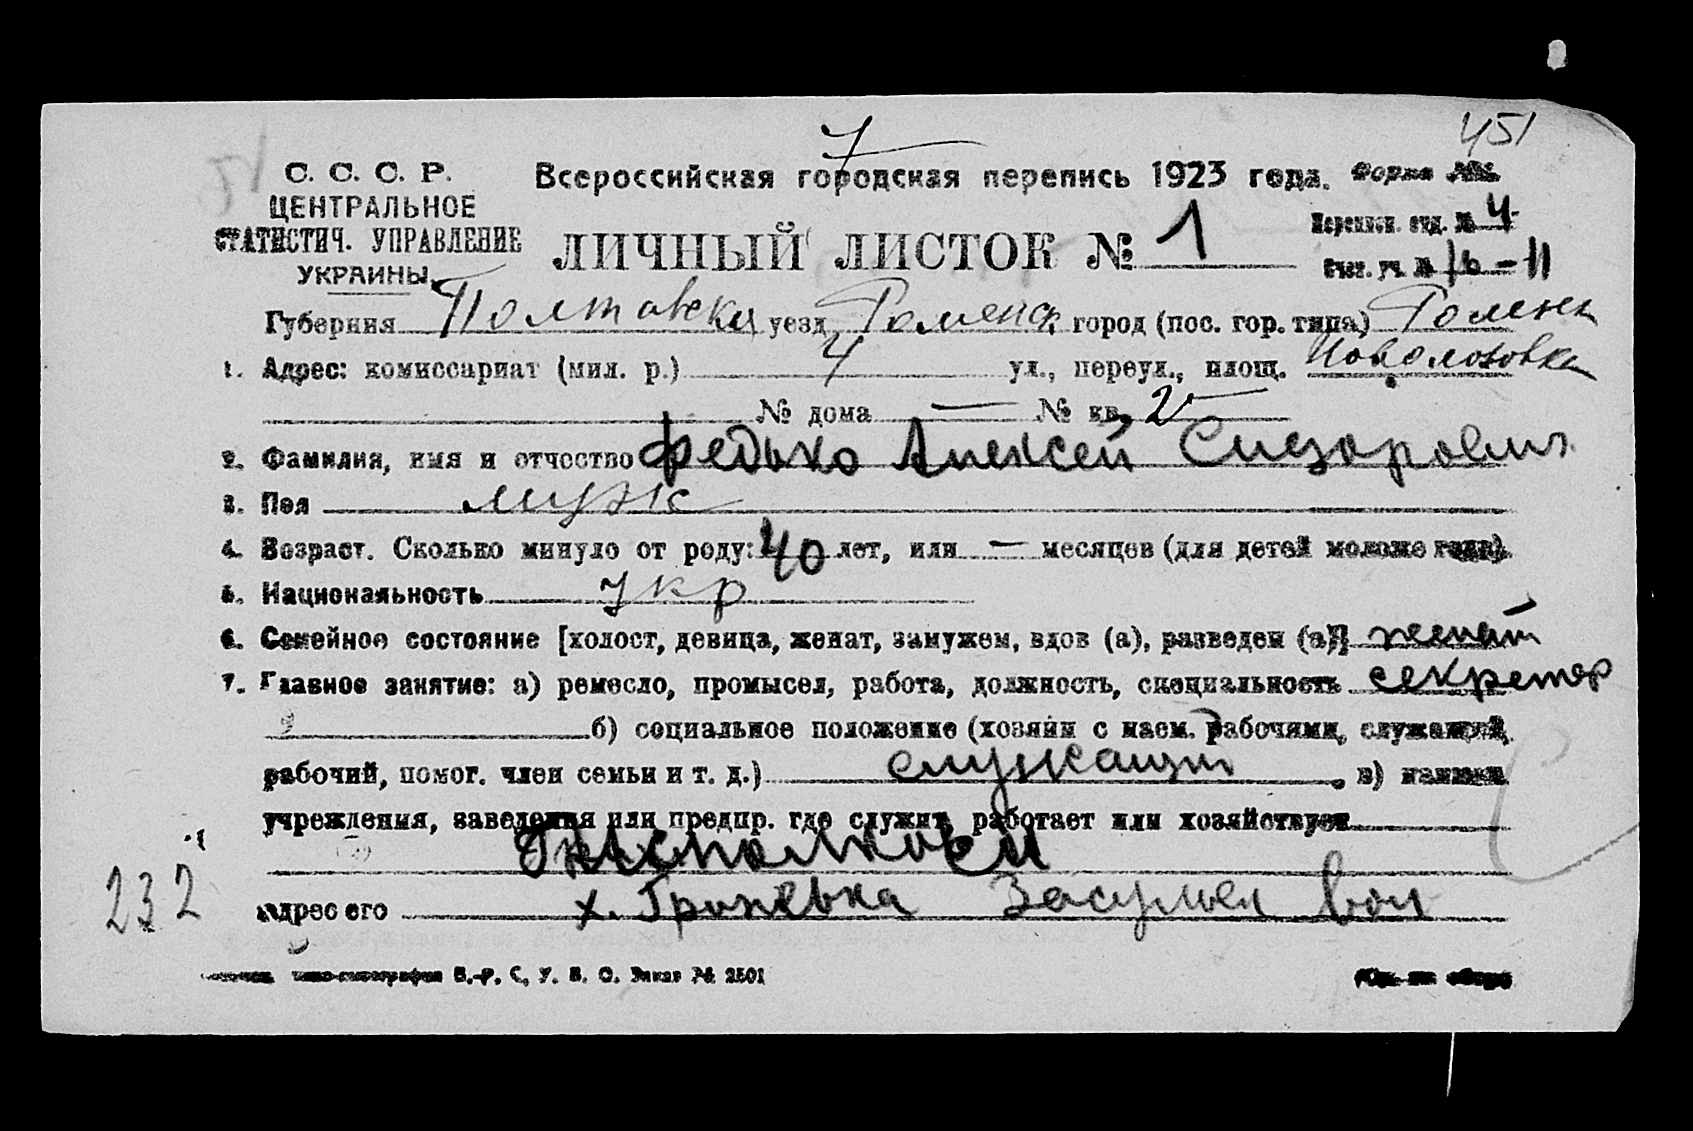 451
7
С. С. С. Р.
ЦЕНТРАЛЬНОЕ
СТАТИСТИЧ. УПРАВЛЕНИЕ
УКРАИНЫ.
Всероссийская городская перепись 1923 года. Форма
ЛИЧНЫЙ ЛИСТОК № 1
Переписн. отд. № 4
Счет. уч. № 10-11
Губерния Полтавск уезд Роменск город (пос. гор. типа) Ромень
1. Адрес: комиссариат (мил. р.) 4 ул., переул., площ.
№ дома — № кв. 2
2. Фамилия, имя и отчество Федько Алексей
3. Пол муж
4. Возраст. Сколько минуло от роду: 40 лет, или — месяцев (для детей моложе года).
5. Национальность укр
6. Семейное состояние [холост, девица, женат, замужем, вдов (а), разведен (а)] женат
7. Главное занятие: а) ремесло, промысел, работа, должность, специальность секретар
б) социальное положение (хозяин с наем. рабочими, служащий,
рабочий, помог. член семьи и т. д.) служащий, в)
учреждения, заведения или предпр. где служит, работает или хозяйствует
232
адрес его х. вол
Заказ № 2501